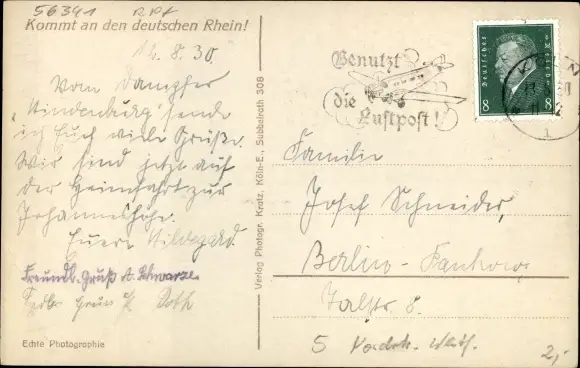 56341
R.P.F
Kommt an den deutschen Rhein!
12.8.30.
Vom Dampfer
"Hindenburg" sende
ich Euch viele Grüße.
Wir sind jetzt auf
der Heimfahrt zur
Johanneshöhe.
Euere Hildegard.
Freundl. Gruß A. Schwarze
Roth
Echte Photographie
Verlag Photogr. Kratz, Köln-E., Subbelrath 308
Benutzt
die
Luftpost!
Deutsches Reich
8 8
KÖLN
1
Familie
Josef Schneider,
Berlin-Pankow,
Talstr. 8.
5
2,-